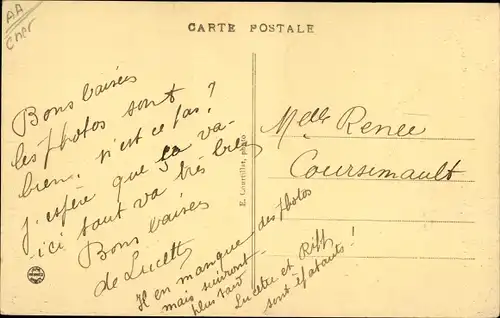 AA
Cher
CARTE POSTALE
Bons baisers
les photos sont
bien, n'est ce pas?
j'espère que ça va-
ici tout va très bien
Bons baisers
de Lucette
Il en manque des photos
mais suivront
plus tard
Lucette et Riff
sont épatants!
E. Courtillet, photo
Melle Renée
Coursimault